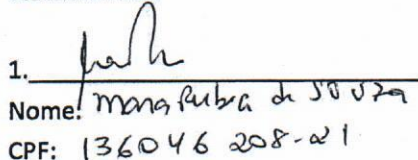 1.
Nome: Maria Rubia de Souza
CPF: 136046 208-21